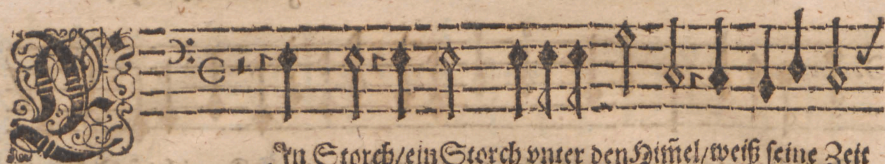 EJn Storch/ein Storch vnter den Him̃el/weiß ſeine Zeit